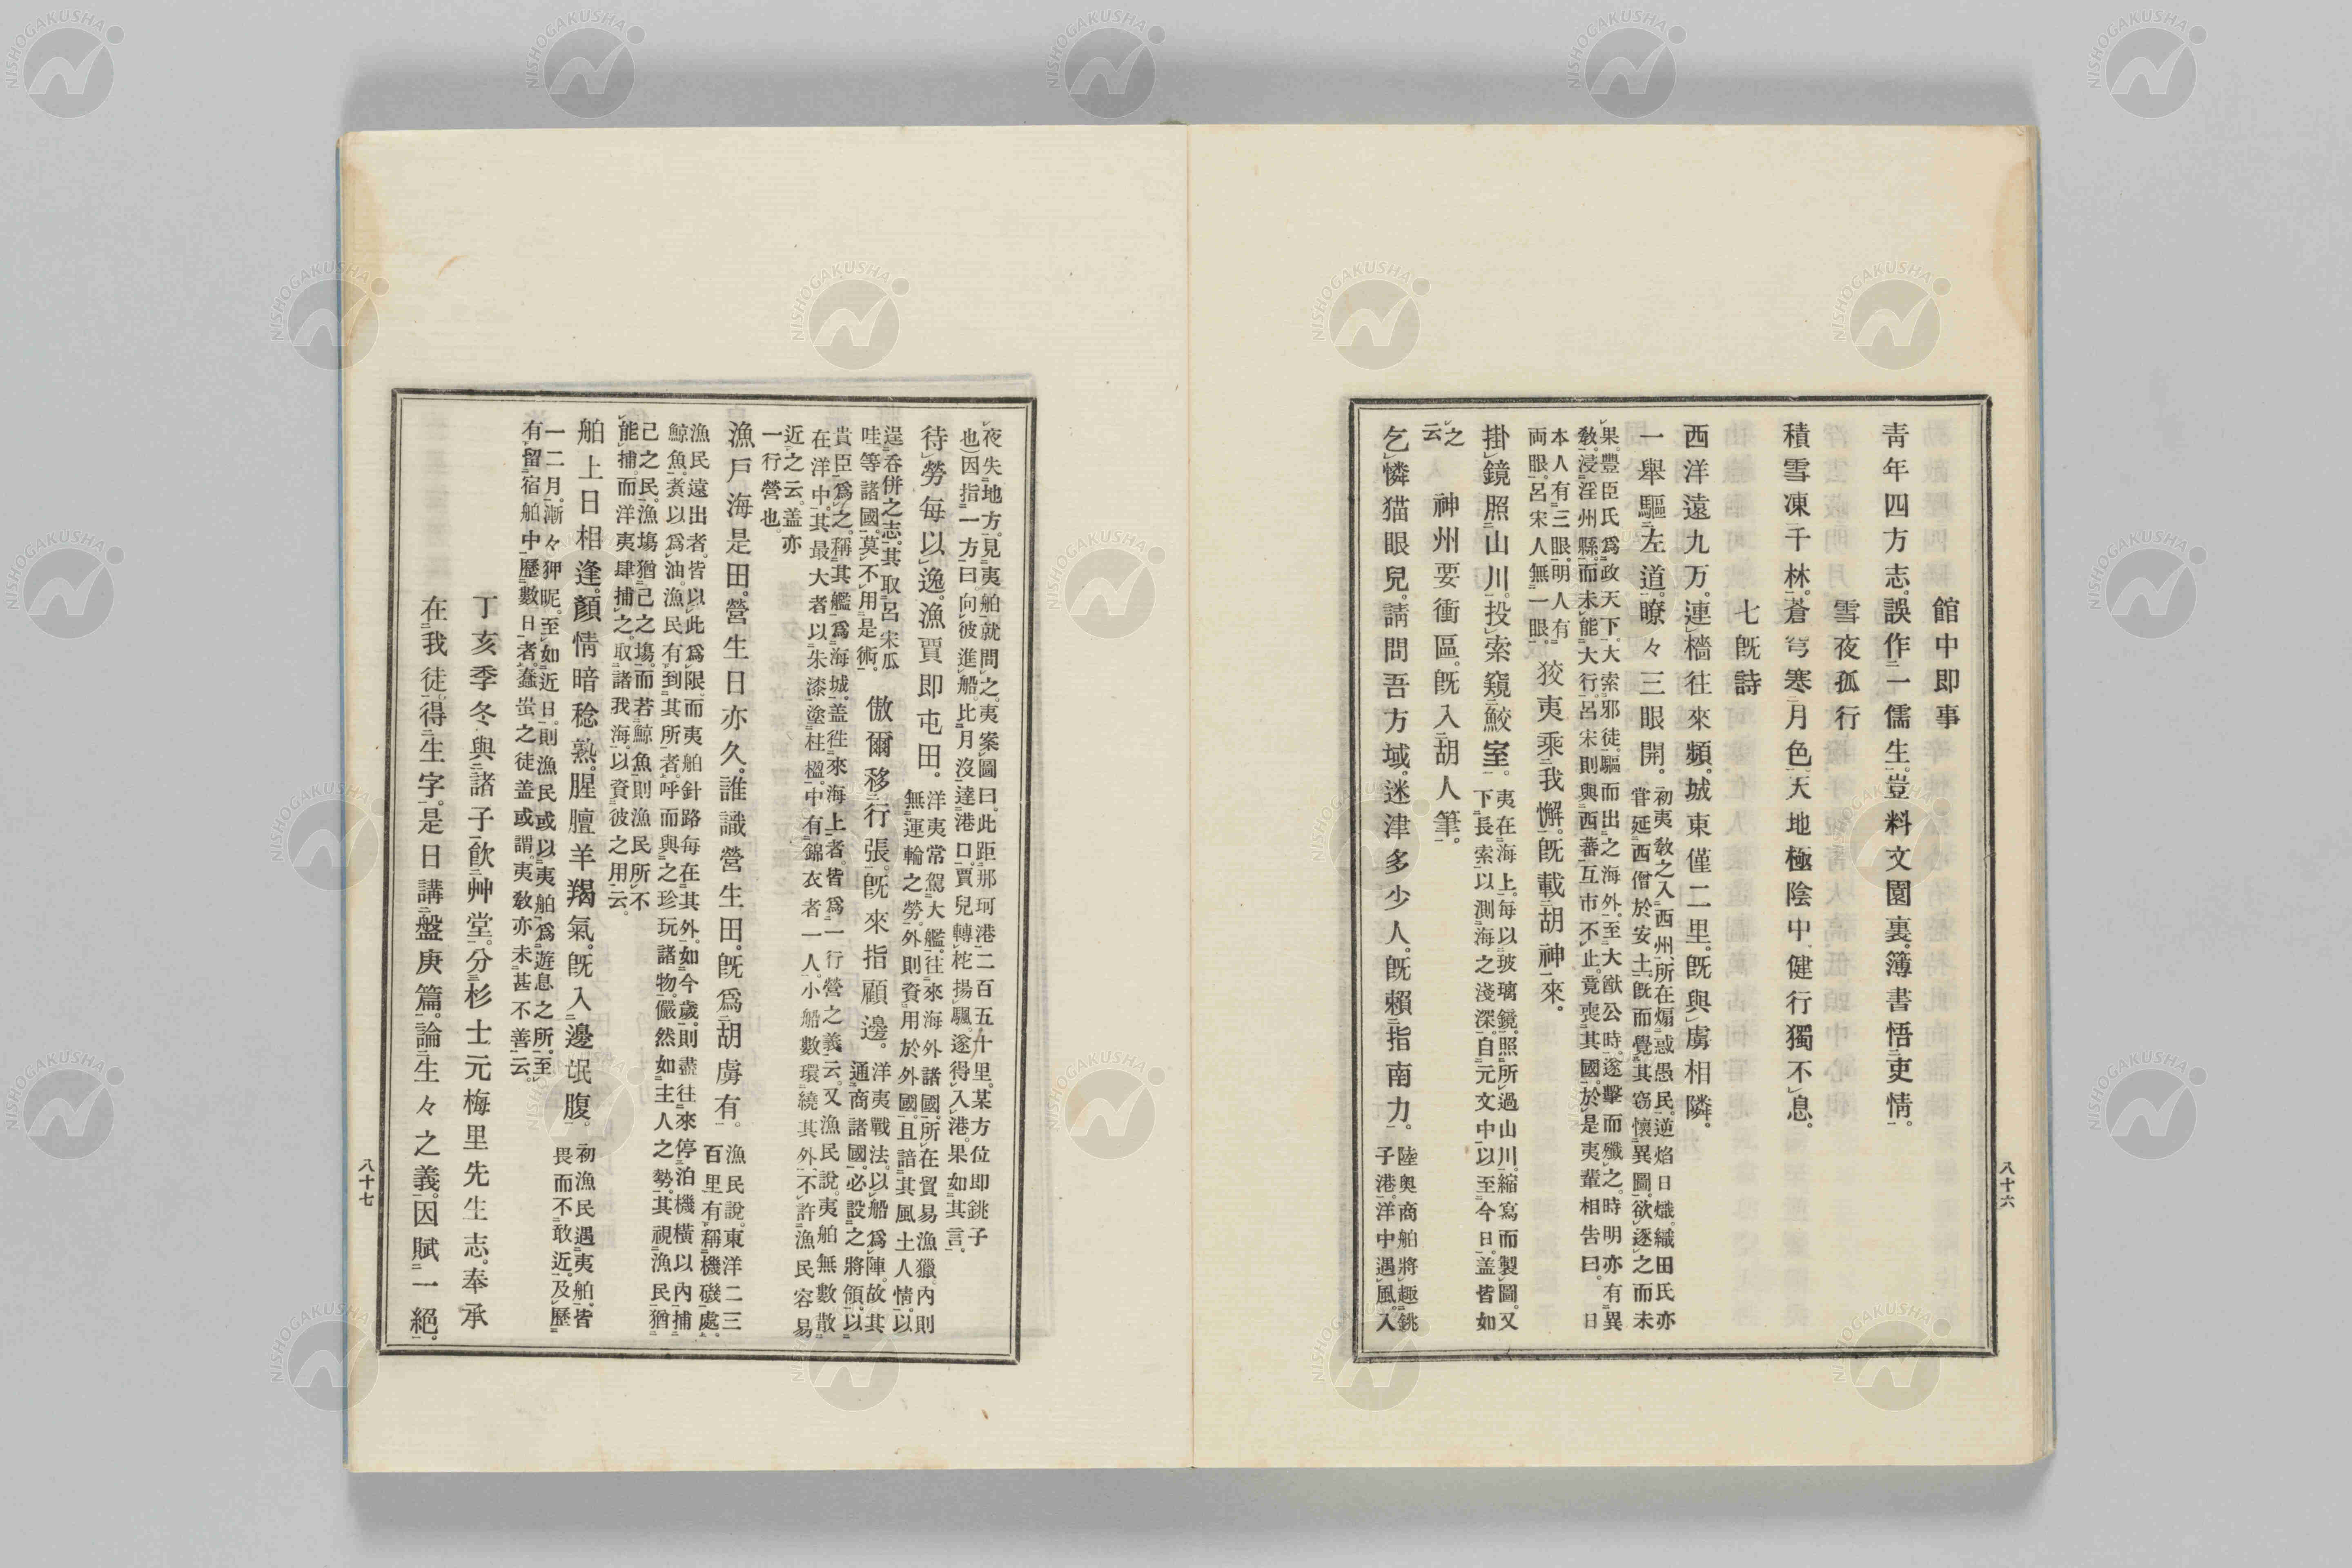 館中即事
靑年四方志。誤作一儒生。豈料文園裏。簿書悟吏情。
雪夜孤行
積雪凍千林。蒼穹寒月色。天地極陰中。健行獨不息。
七旣詩
西洋遠九万。連檣往來頻。城東僅二里。旣與虜相隣。
一擧驅左道。暸々三眼開。初夷敎之入西州、所在煽惑愚民。逆焰日熾。織田氏亦
甞延西僧於安土。旣而覺其窃懷異圖。欲逐之而未
果。豐臣氏爲政天下。大索邪徒。驅而出之海外。至大猷公時。遂擊而殲之。時明亦有異
敎。浸淫州縣。而未能大行。呂宋則與西蕃互市不止。竟喪其國。於是夷輩相告曰。日
本人有三眼。明人有
両眼。呂宋人無一眼。
狡夷乘我懈。旣載胡神來。
掛鏡照山川。投索窺鮫室。夷在海上。每以玻璃鏡。照所過山川。縮寫而製圖。又
下長索以測海之淺深。自元文中以至今日。盖皆如
之
云
神州要衝區。旣入胡人筆。
乞憐猫眼兒。請問吾方域。迷津多少人。旣賴指南力。陸奧商舶將趣銚
子港。洋中遇風。入
八十六
夜失地方。見夷舶就問之。夷案圖曰。此距那珂港二百五十里。某方位即銚子
也)因指一方曰。向彼進船。比月沒達港口。賈兒轉柁揚颿。遂得入港。果如其言。
待勞每以逸。漁賈即屯田。洋夷常駕大艦。往來海外諸國。所在貿易漁獵。內則
無運輸之勞。外則資用於外國。且諳其風土人情。以
逞呑併之志。其取呂宋瓜
哇等諸國。莫不用是術。
傲爾移行張。旣來指顧邊。洋夷戰法。以船爲陣。故其
通商諸國。必設之將領。以
貴臣爲之。稱其艦爲海城。盖徃來海上者。皆爲一行營之義云。又漁民說。夷舶無數散
在洋中。其最大者以朱漆塗柱楹。中有錦衣者一人。小船數環繞其外。不許漁民容易
近之云。盖亦
一行營也。
漁戶海是田。營生日亦久。誰識營生田。旣爲胡虜有。漁民說。東洋二三
百里有稱機磯處。
漁民遠出者。皆以此爲限。而夷舶針路每在其外。如今歲。則盡往來停泊機橫以內捕
鯨魚。𤋎以爲油。漁民有到其所者。呼而與之珍玩諸物。儼然如主人之勢。其視漁民猶
己之民。漁塲猶己之塲。而若鯨魚則漁民所不
能捕。而洋夷肆捕之。取諸我海。以資彼之用云。
舶上日相逢。顏情暗稔熟。腥膻羊羯氣。旣入邊氓腹。初漁民遇夷舶。皆
畏而不敢近。及歷
一二月。漸々狎昵。至如近日。則漁民或以夷舶爲遊息之所。至
有留宿舶中歷數日者。蠢蚩之徒盖或謂。夷敎亦未甚不善云。
丁亥季冬。與諸子飮艸堂。分杉士元梅里先生志。奉承
在我徒。得生字。是日講盤庚篇。論生々之義。因賦一絕。
八十七